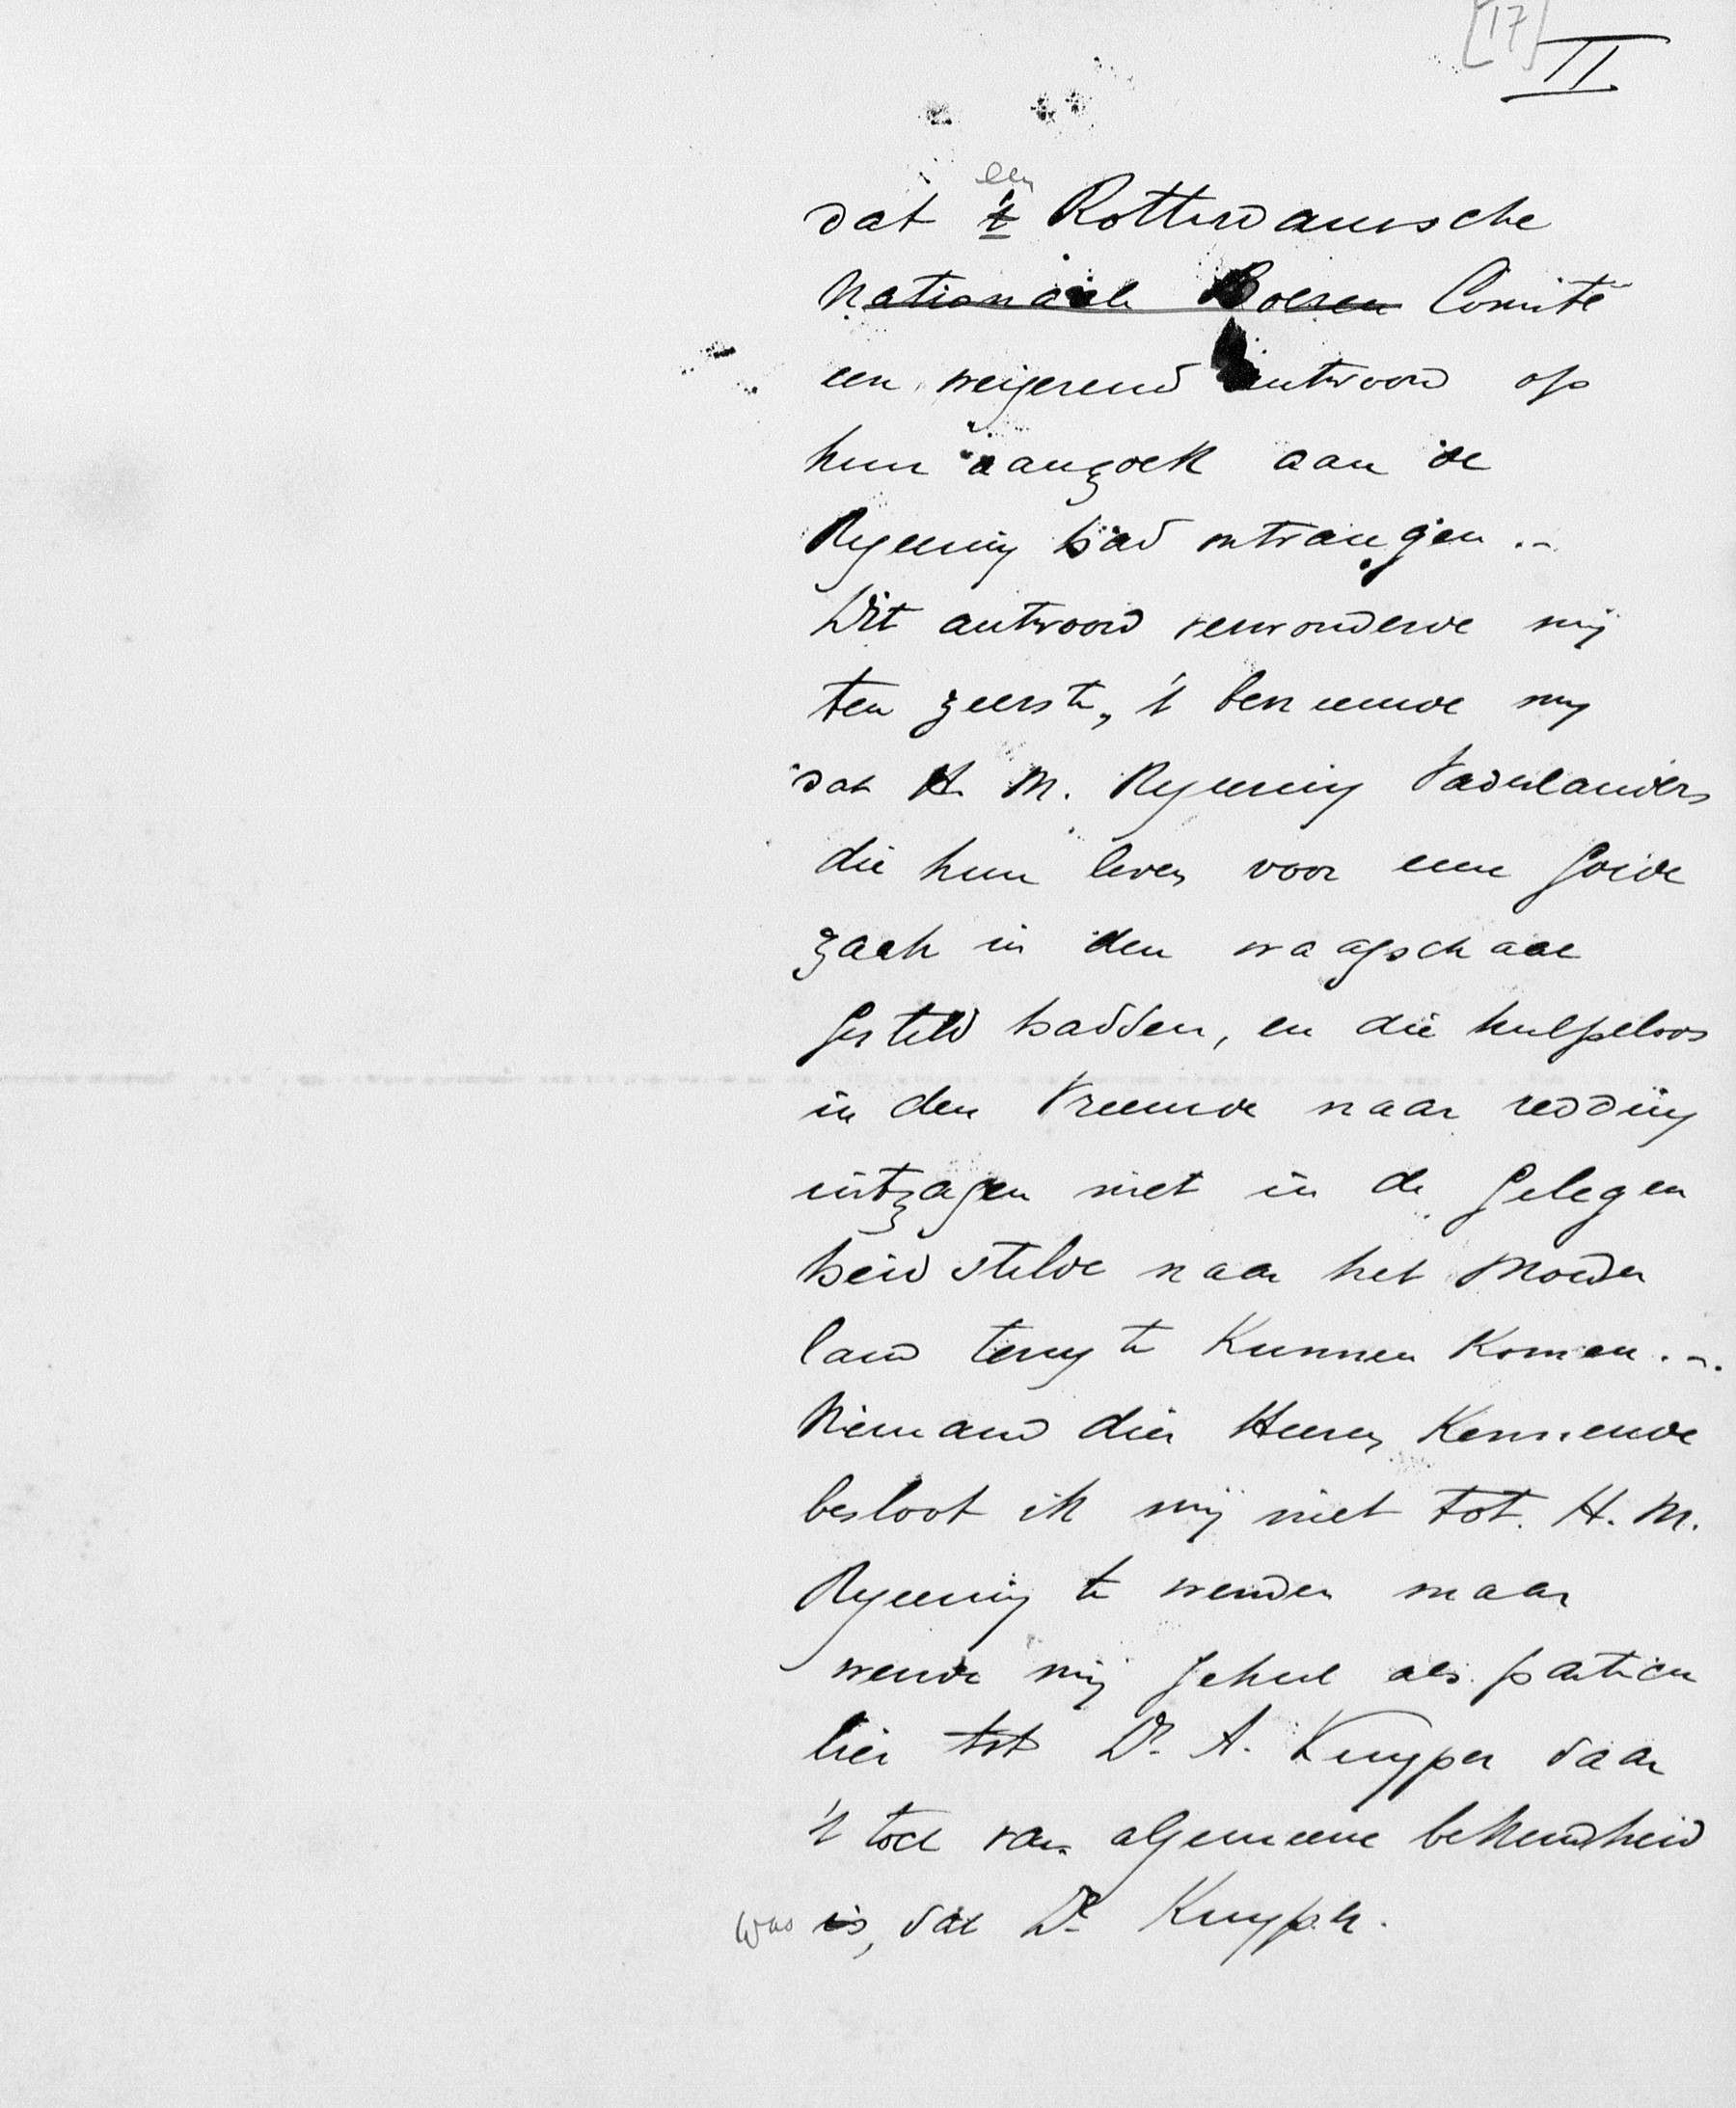 [17]
II
een
dat 't Rotterdamsche
Nationale Boeren Comité
een weigerend antwoord op
hun aanzoek aan de
Regeering had ontvangen.-
Dit antwoord verwonderde mij
ten zeerste, 't benieuwde mij
dat H. M. Regeering Vaderlanders
die hun leven voor eene goede
zaak in den waagschaal
gesteld hadden, en die hulpeloos
in den Vreemde naar redding
uitzagen niet in de gelegen
heid stelde naar het Moeder
land terug te kunnen komen.-.
Niemand dier Heeren kennende
besloot ik mij niet tot H. M.
Regeering te wenden maar
wende mij geheel als particu
lier tot Dr. A. Kuyper daar
't toch van algemeene bekendheid
was is, dat Dr Kuyper.